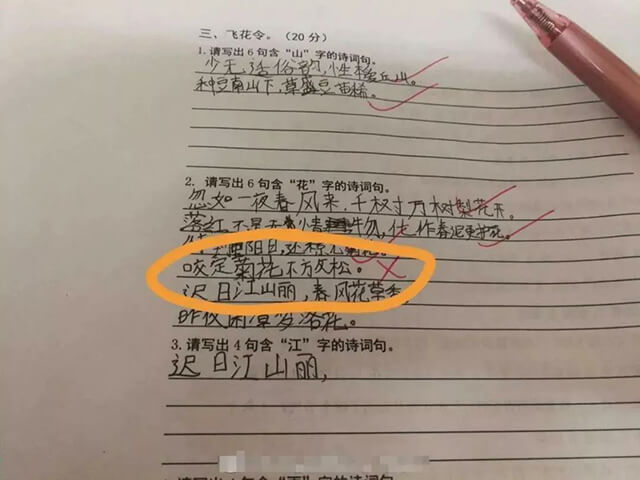 三、飞花令。（20 分）
1.请写出 6 句含“山”字的诗词句。
少无适俗韵，性本爱丘山。
种豆南山下，草盛豆苗稀。
2. 请写出 6 句含“花”字的诗词句。
忽如一夜春风来，千树万树梨花开。
落红不是无情物，化作春泥更护花。
咬定菊花不方久松。
迟日江山丽，春风花草香。
昨夜闲潭梦落花。
3.请写出 4 句含“江”字的诗词句。
迟日江山丽，